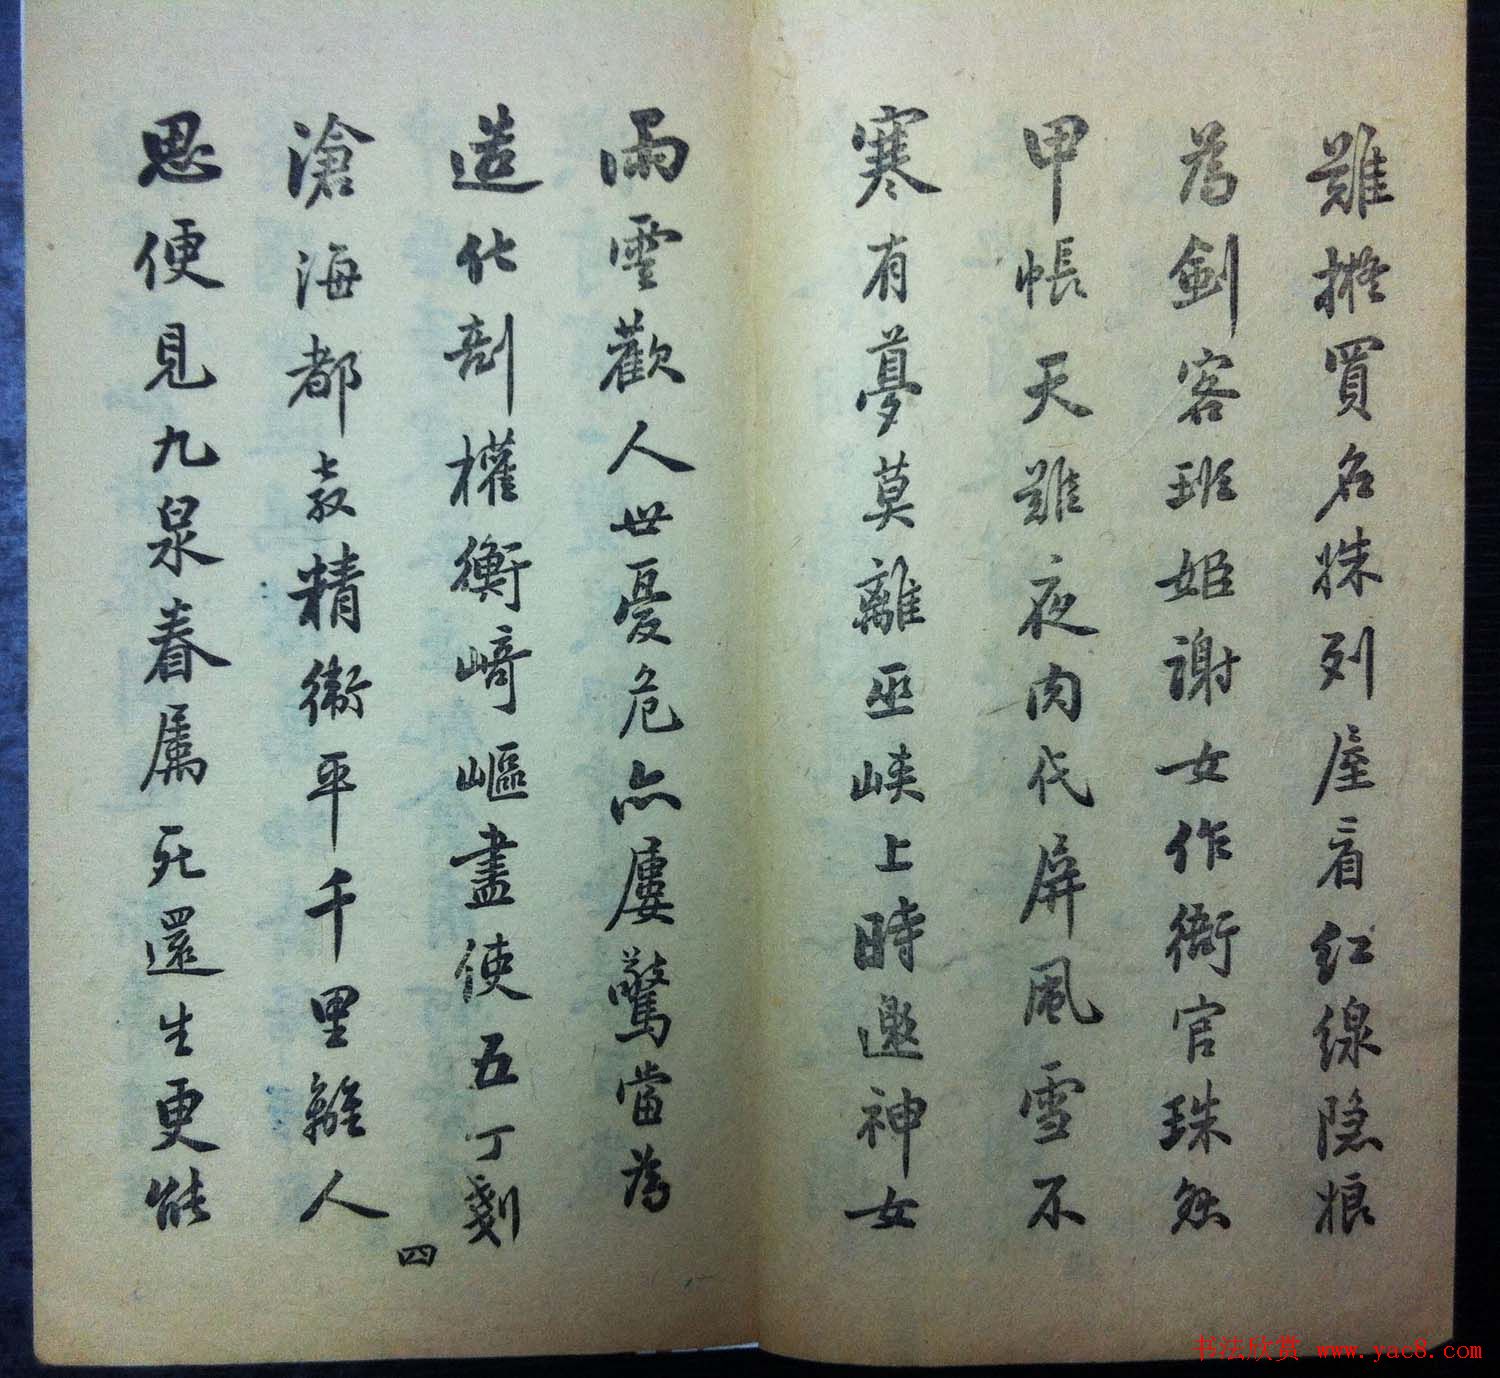 難擬買名姝列屋看紅線隐娘
為劍客班姬謝女作衙官珠
甲帳天難夜肉代屏風雪不
寒有夢莫離巫峽上時邀神女
雨雲歡人世憂危亦屢驚當為
造化剖權衡崎嶇盡使五丁剗
滄海都教精衛平千里離人
思便見九泉眷属死還生更能
四
书法欣赏 www.yac8.com